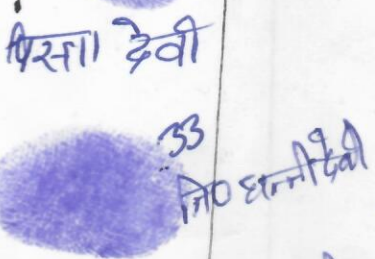 पिस्ता देवी
33
नि० धन्नी देवी